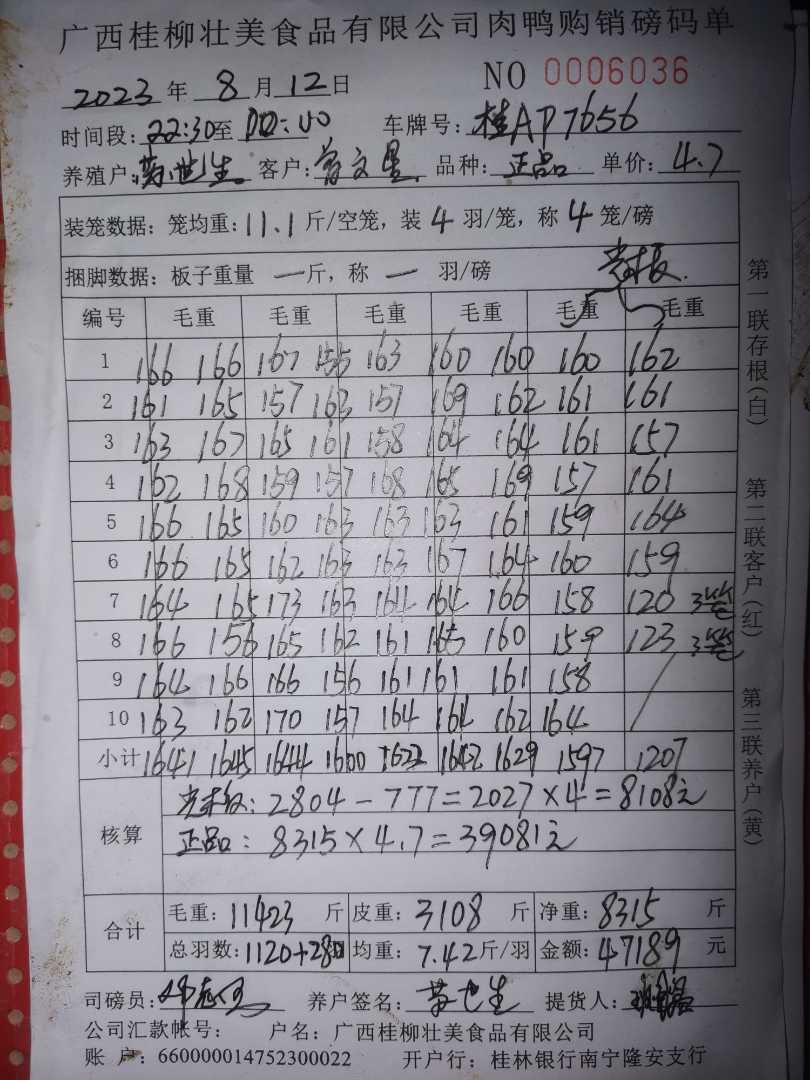 广西桂柳壮美食品有限公司肉鸭购销磅码单
2023 年 8 月 12 日 NO 0006036
时间段: 22:30 至 车牌号: 桂AP7656
养殖户: 世生 客户: 曾文 品种: 正品 单价: 4.7
装笼数据: 笼均重: 11.1 斤/空笼, 装 4 羽/笼, 称 4 笼/磅
捆脚数据: 板子重量 一 斤, 称 一 羽/磅
编号 毛重 毛重 毛重 毛重 毛重 毛重
1 166 166 167 155 163 160 160 160 162
2 161 165 157 163 157 169 162 161 161
3 163 167 165 161 158 164 164 161 157
4 162 168 159 157 168 165 169 157 161
5 166 165 160 163 163 163 161 159 164
6 166 165 162 163 163 167 164 160 159
7 164 165 173 163 164 164 166 158 120 3笼
8 166 156 165 162 161 165 160 159 123 3笼
9 164 166 166 156 161 161 161 158
10 163 162 170 157 164 164 162 164
小计 1641 1645 1644 1600 1622 1642 1629 1597 1207
核算
2804-777=2027×4=8108元
正品: 8315×4.7=39081元
合计 毛重: 11423 斤 皮重: 3108 斤 净重: 8315 斤
总羽数: 1120+280 均重: 7.42 斤/羽 金额: 47189 元
司磅员: 养户签名: 世生 提货人:
公司汇款帐号: 户名: 广西桂柳壮美食品有限公司
账 户: 660000014752300022 开户行: 桂林银行南宁隆安支行
第一联存根(白) 第二联客户(红) 第三联养户(黄)